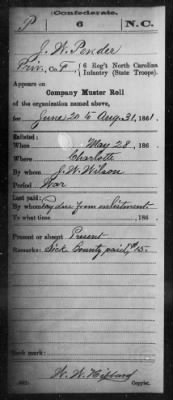 Confederate.
P 6 N.C.
J. W. Pender
Priv., Co. F, 6 Reg't North Carolina
Infantry (State Troops).
Appears on
Company Muster Roll
of the organization named above,
for June 20 to Aug. 31, 1861.
Enlisted:
When May 28, 186 .
Where Charlotte
By whom J. W. Wilson
Period War
Last paid:
By whom Pay due from enlistment
To what time , 186 .
Present or absent Present
Remarks: Sick County paid $15.
Book mark:
W. W. 
Copyist.